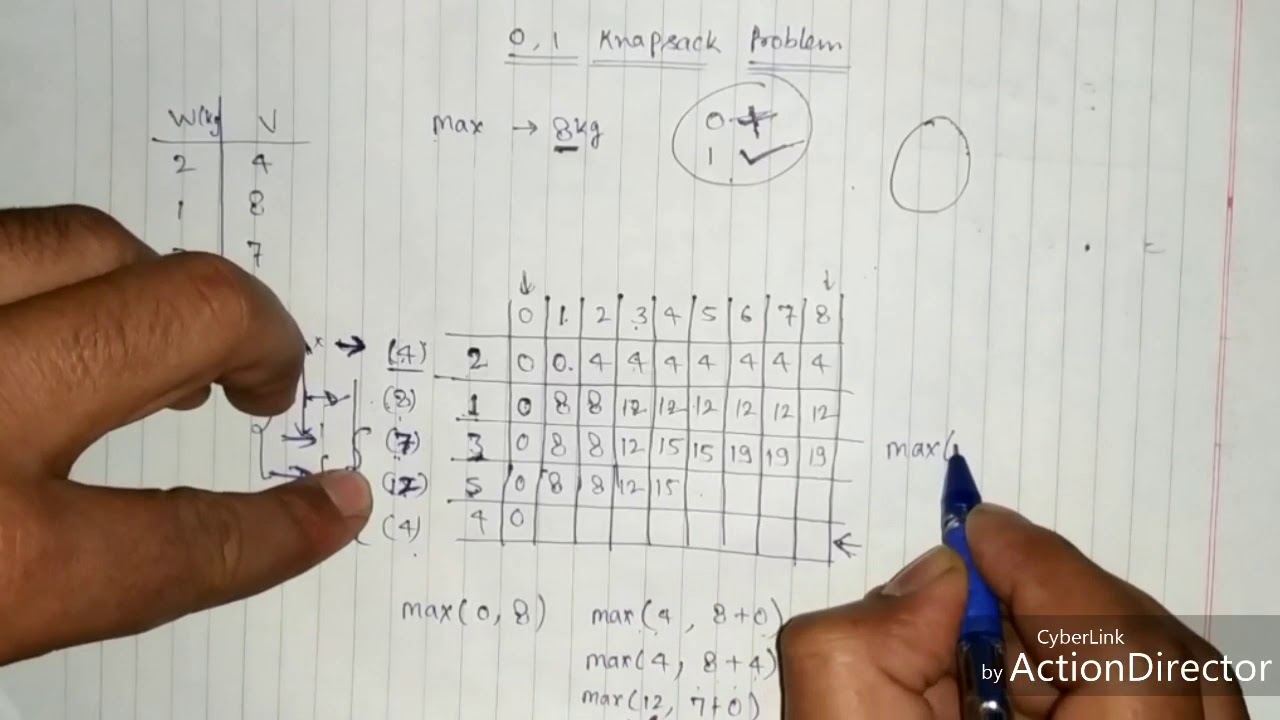 0, 1 Knapsack Problem
W(kg) V
max → 8kg
0
1
2 4
1 8
7
0 1 2 3 4 5 6 7 8
(4) 2 0 0 4 4 4 4 4 4 4
(8) 1 0 8 8 12 12 12 12 12 12
(7) 3 0 8 8 12 15 15 19 19 19
(12) 5 0 8 8 12 15
(4) 4 0
max(
max(0, 8) max(4, 8+0)
max(4, 8+4)
max(12, 7+0)
CyberLink
by ActionDirector